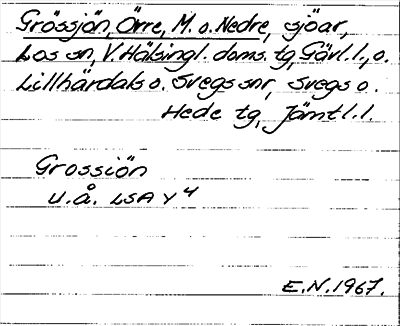 Grössjön, Örre, M. o. Nedre, sjöar,
Los sn, V. Hälsingl. doms. tg, Gävl. l., o.
Lillhärdals o. Svegs snr, Svegs o.
Hede tg, Jämtl. l.
Grossiön
U.å. LSA Y 4
E.N. 1967.